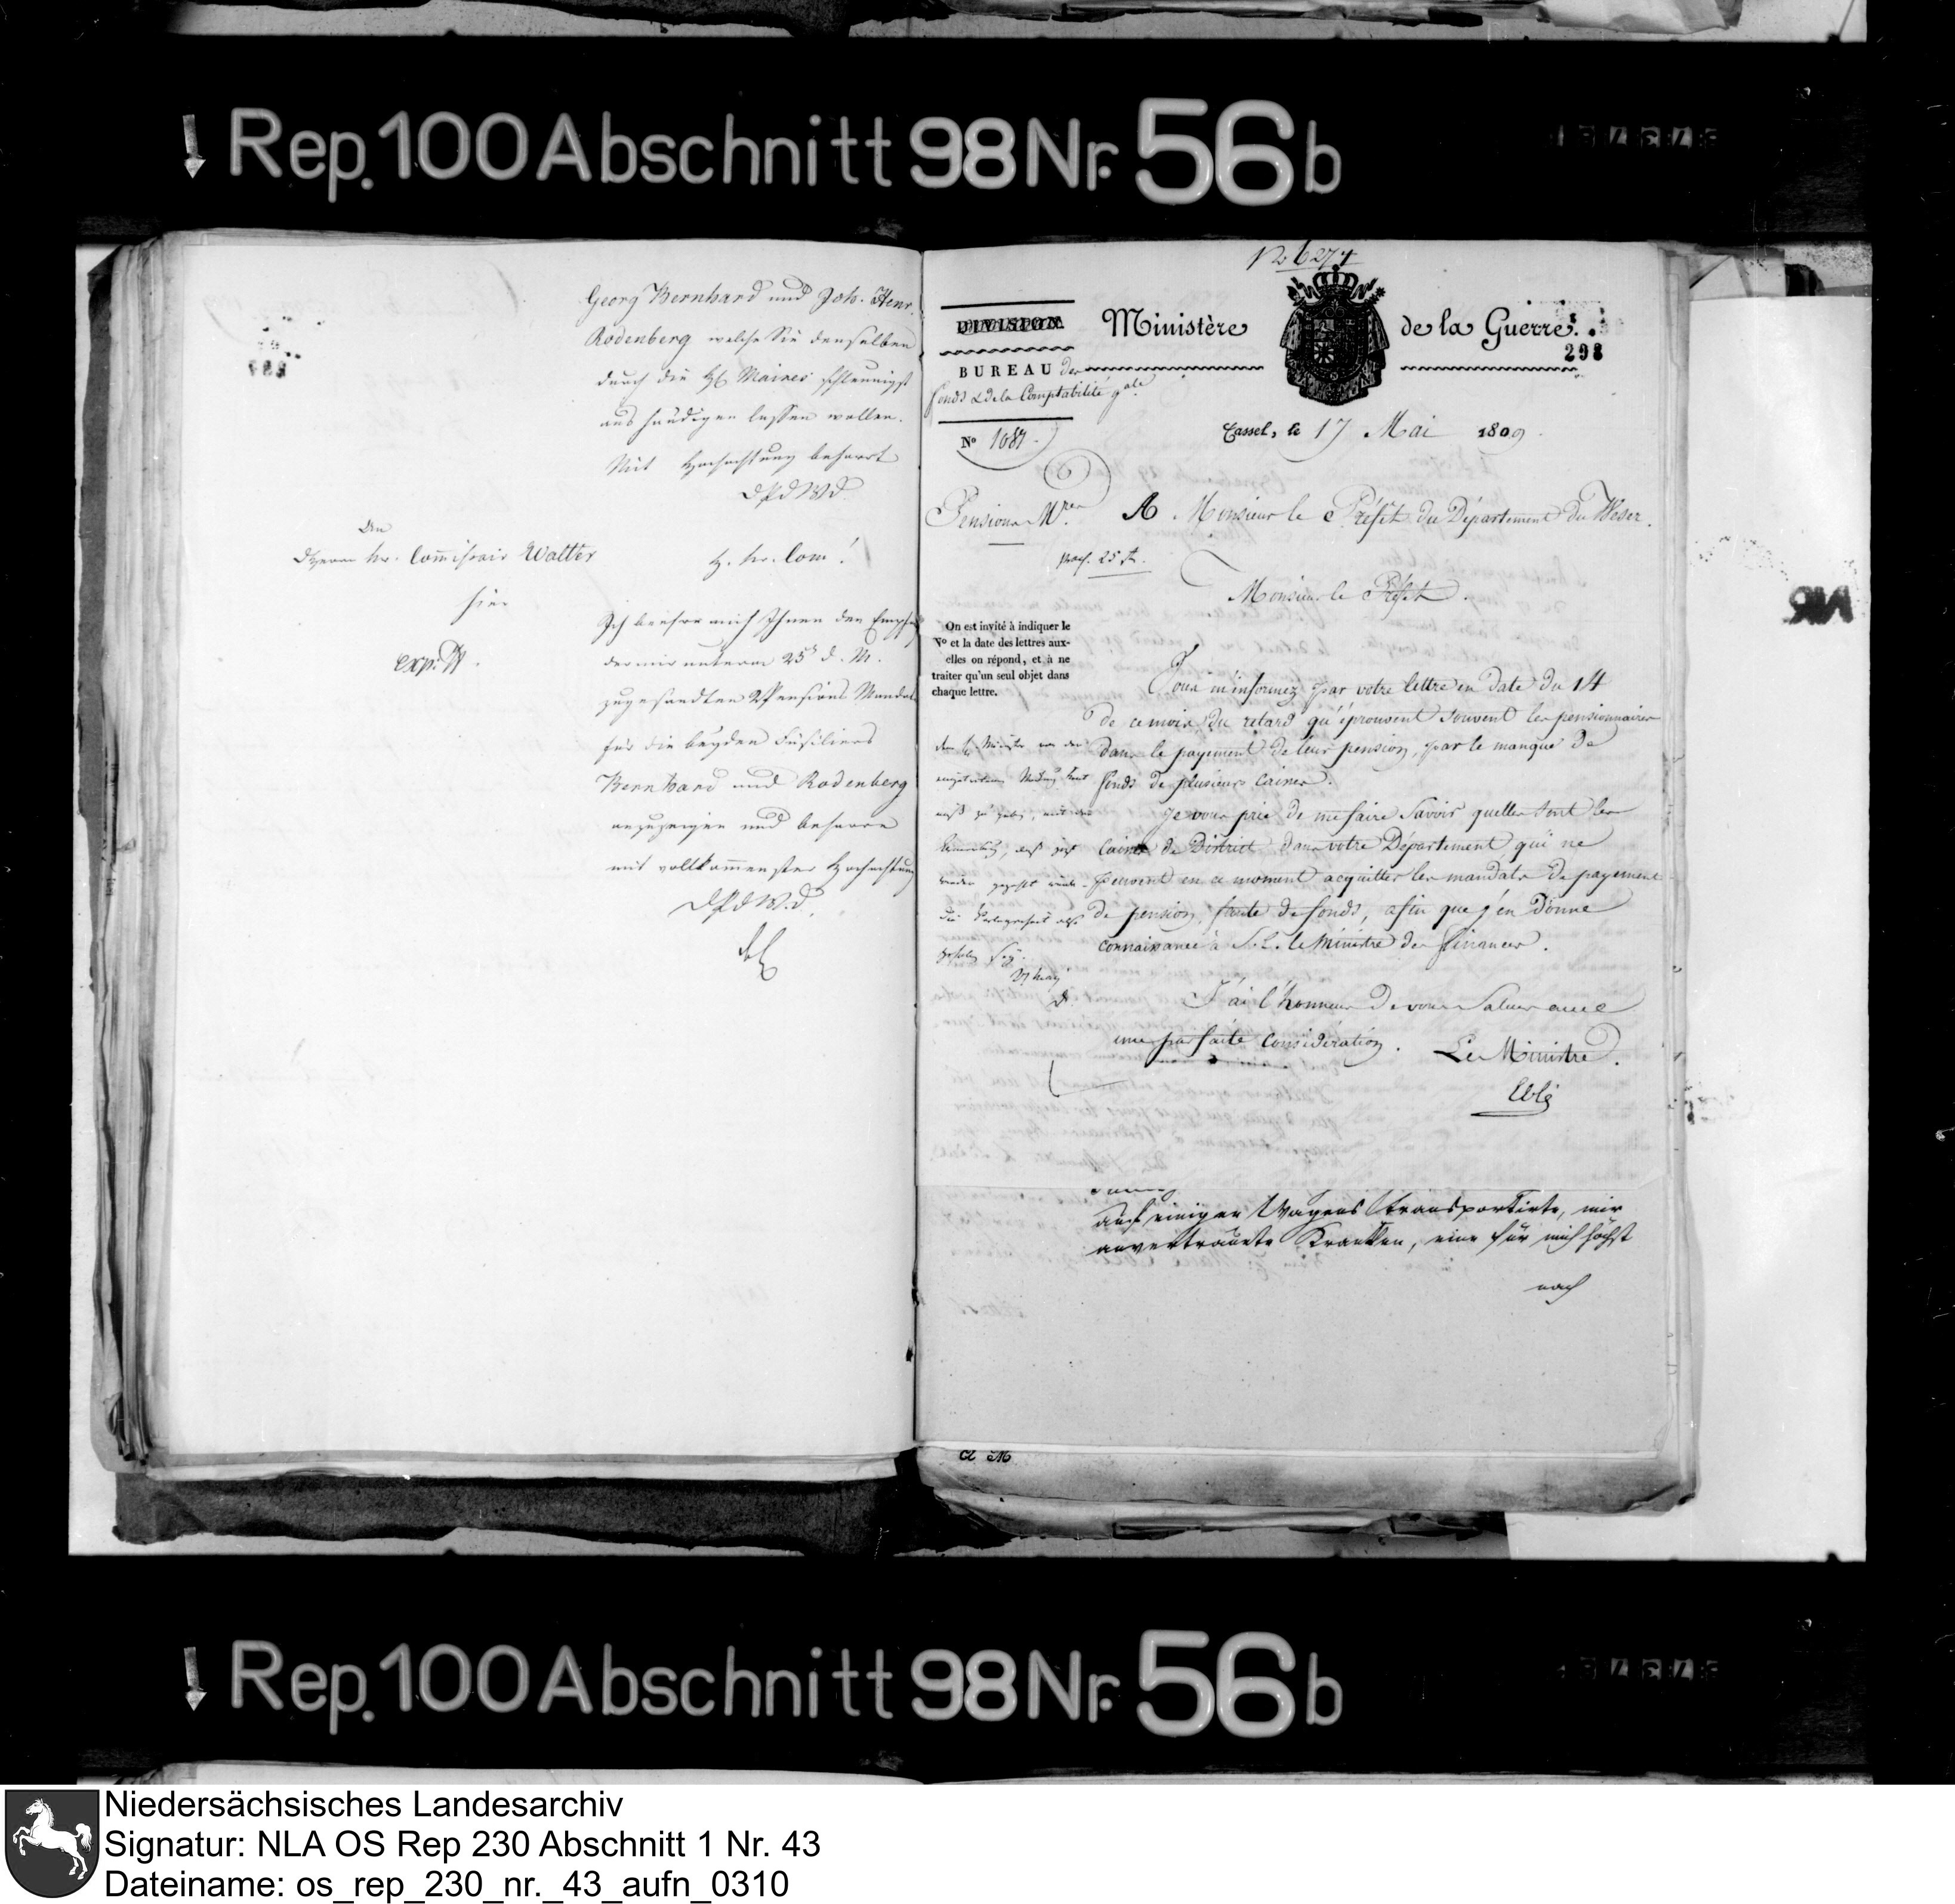 Rep. 100 Abschnitt 98 Nr. 56 b
Georg Bernhard und Joh. Henr.
Rodenberg welche Sie denselben
durch die H. Maires schleunigst
aushändigen lassen wollen.
Mit Hochachtung beharrt
DPdWD.
An
Herrn Kr. Commissair Walter
hier
exp.
H. Kr. Com!
Ich beehre mich Ihnen den Empfang
der mir unterm 25 d. M.
zugesandten 2 Pensions Mandate
für die beyden Füsiliers
Bernhard und Rodenberg
anzuzeigen und beharre
mit vollkommenster Hochachtung
DPdW.D.
No 6274
DIVISION
Ministère de la Guerre.
298
BUREAU des
fonds & de la Comptabilité gale
No 1087.
Cassel, le 17 Mai 1809.
Pensions Mres
A Monsieur le Préfet du Département du Weser.
praes. 25 st.
Monsieur le Préfet.
On est invité à indiquer le
No et la date des lettres aux-
elles on répond, et à ne
traiter qu'un seul objet dans
chaque lettre.
Vous m'informez par votre lettre en date du 14
de ce mois du retard qu'éprouvent souvent les pensionnaires
dans le payement de leur pension, par le manque de
fonds de plusieurs caisses.
Je vous prie de me faire savoir quelles sont les
caisses de District dans votre Département qui ne
peuvent en ce moment acquitter les mandats de payement
de pension, faute de fonds, afin que j'en donne
connaissance à S. E. le Ministre des finances.
J'ai l'honneur de vous saluer avec
une parfaite considération.
Le Ministre.
Eblé
auf einigen Wagens transportirte, mir
anvertrauete Kranken, eine für mich höchst
noch
Rep. 100 Abschnitt 98 Nr. 56 b
Niedersächsisches Landesarchiv
Signatur: NLA OS Rep 230 Abschnitt 1 Nr. 43
Dateiname: os_rep_230_nr._43_aufn_0310